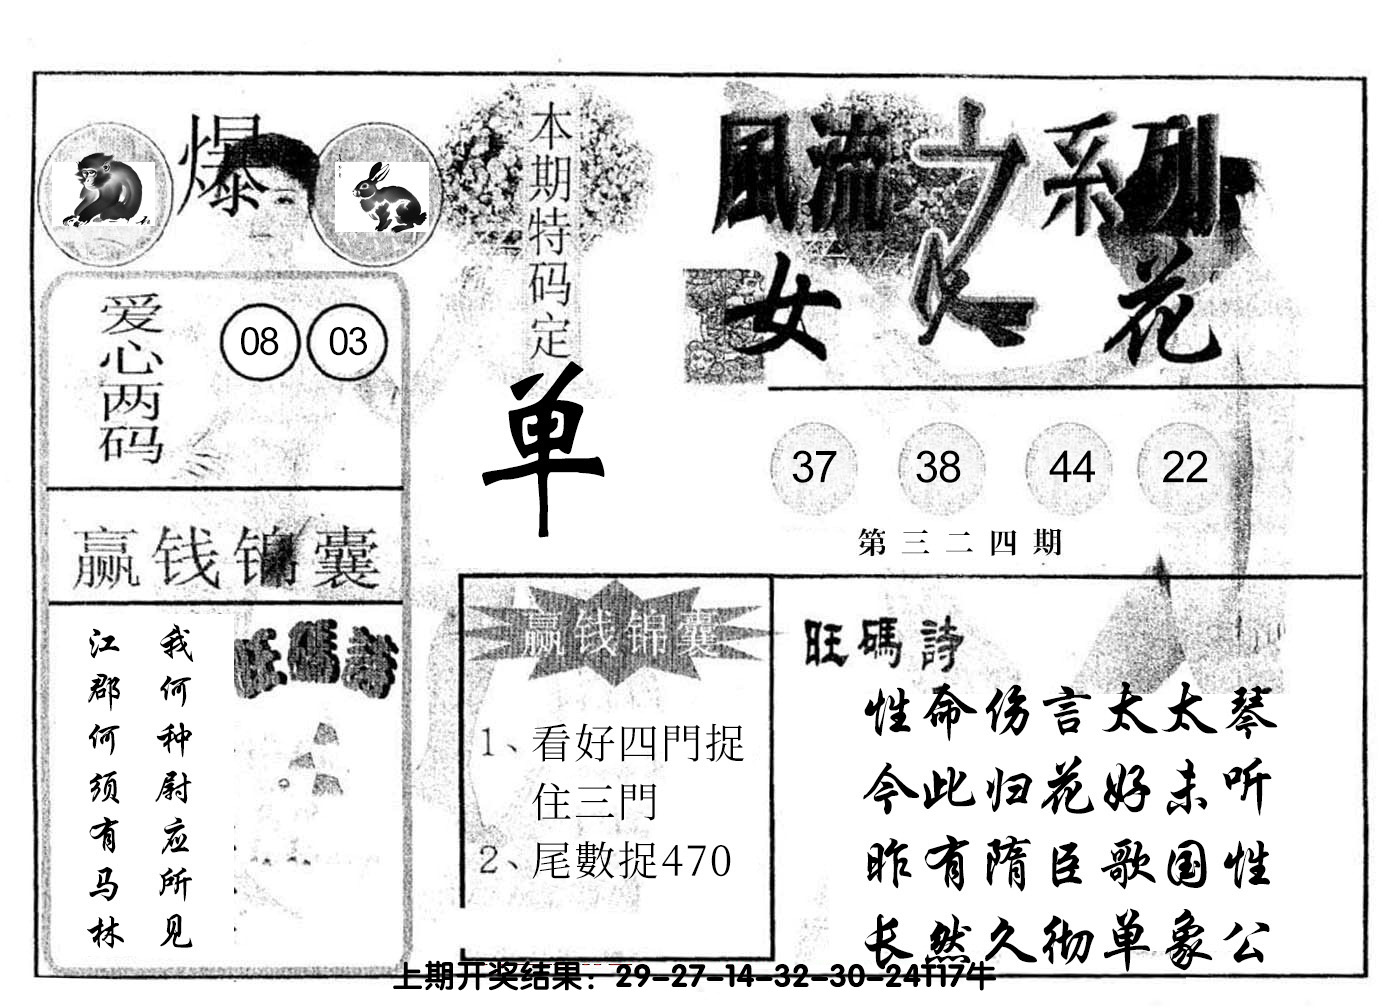 爆
本期特码定
单
風流之系列
女人花
爱心两码
08 03
37 38 44 22
第三二四期
赢钱锦囊
我何种尉应所见
江郡何须有马林
旺碼詩
赢钱锦囊
1、看好四門捉
住三門
2、尾數捉470
旺碼詩
性命伤言太太琴
今此归花好未听
昨有隋臣歌国性
长然久彻单象公
上期开奖结果：29-27-14-32-30-24T17牛